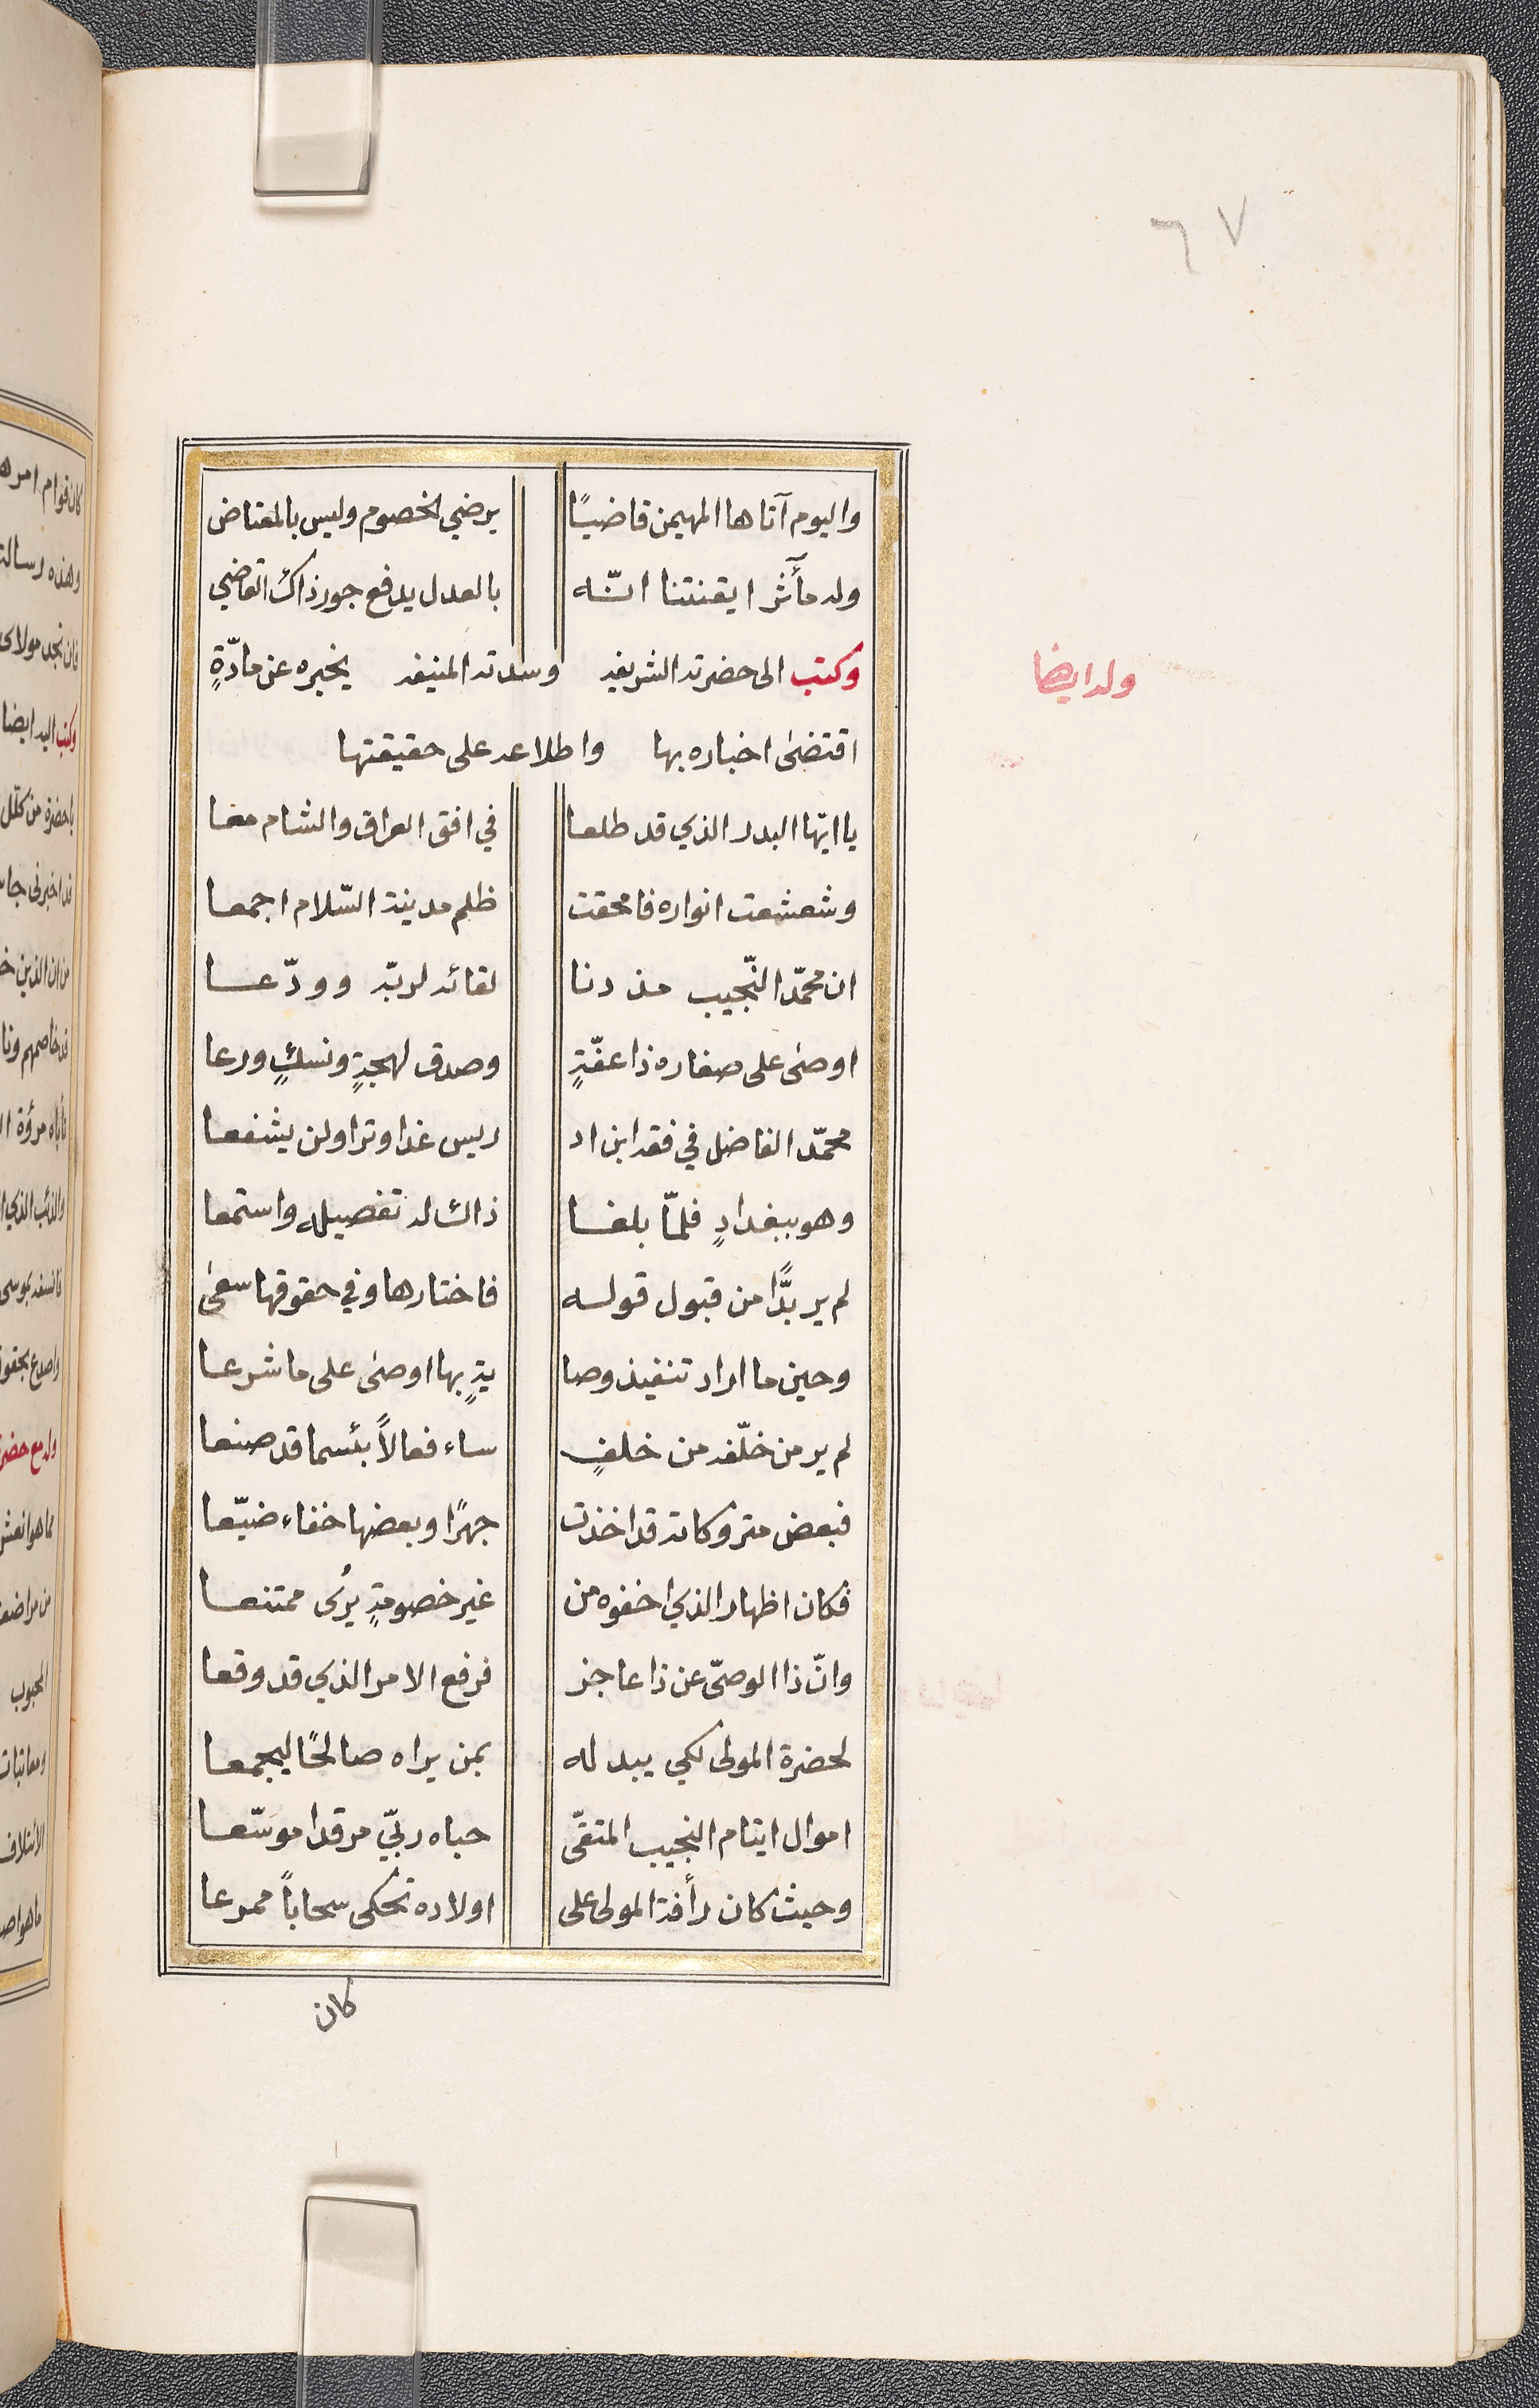 ٦٧
واليوم آتاها المهيمن قاضيًا يرضي الخصوم وليس بالمعتاض
وله مآثر ايقنتنا انّه بالعدل يدفع جور ذاك القاضي
وكتب الى حضرته الشريفه وسدته المنيفه يخبره عن مادّةٍ
وله ايضا
اقتضى اخباره بها واطلاعه على حقيقتها
يا ايّها البدر الذي قد طلعا في افق العراق والشام معا
وشعشعت انواره فامحقت ظلم مدينة السّلام اجمعا
ان محمّد النّجيب مذ دنا لقائه لربّه وودّعا
اوصى على صغاره ذا عفّةٍ وصدق لهجةٍ ونسكٍ ورعا
محمّد الفاضل في فقه ابن اد ريس غدا وترا ولن يشفعا
وهو ببغدادٍ فلمّا بلغا ذالك له تفصيله واستمعا
لم ير بدًّا من قبول قوله فاختارها وفي حقوقها سعى
وحين ما اراد تنفيذ وصا يةٍ بها اوصى على ما شرعا
لم ير من خلّفه من خلفٍ ساء فعالاً بئسما قد صنعا
فبعض متروكاته قد اخذت جهرًا وبعضها خفاء ضيّعا
فكان اظهار الذي اخفوه من غير خصومةٍ يرى ممتنعا
وانّ ذا الوصىّ عن ذا عاجز فرفع الامر الذي قد وقعا
لحضرة المولى لكي يبدله بمن يراه صالحًا ليجمعا
اموال ايتام النجيب المتقّى حباه ربّي مرقدا موسّعا
وحيث كان رأفة المولى على اولاده تحكى سحاباً ممرعا
كان